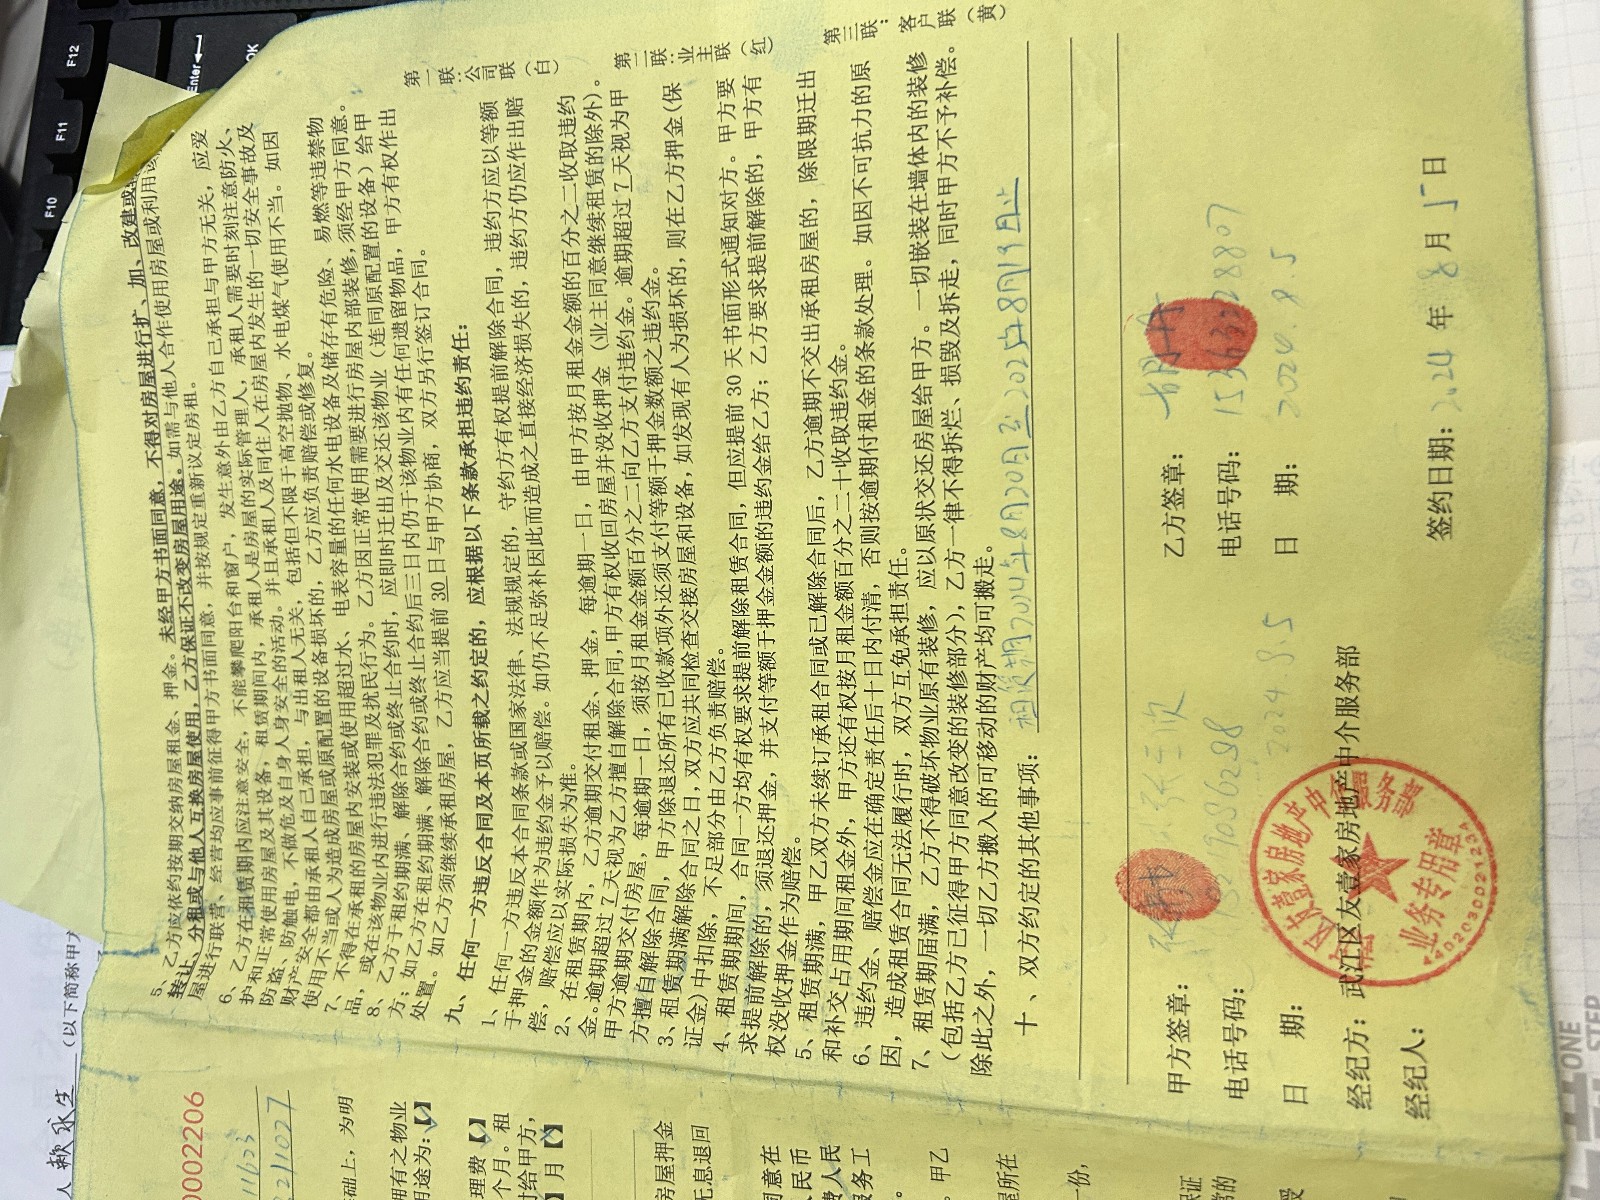 5、乙方应依约按期交纳房屋租金、押金。未经甲方书面同意，不得对房屋进行扩、加、改建或
转让、分租或与他人互换房屋使用，乙方保证不改变房屋用途。如需与他人合作使用房屋或利用
屋进行联营、经营均应事前征得甲方书面同意，并按规定重新议定房租。
6、乙方在租赁期内应注意安全，不能攀爬阳台和窗户，发生意外由乙方自己承担与甲方无关，应爱
护和正常使用房屋及其设备，租赁期间内，承租人是房屋的实际管理人，承租人需要时刻注意防火、
防盗、防触电，不做危及自身人身安全的活动。并且承租人及同住人在房屋内发生的一切安全事故及
财产安全都由承租人自己承担，与出租人无关，包括但不限于高空抛物、水电煤气使用不当。如因
使用不当或人为造成房屋或原配置的设备损坏的，乙方应负责赔偿或修复。
7、不得在承租的房屋内安装或使用超过水、电表容量的任何水电设备及储存有危险、易燃等违禁物
品，或在该物业内进行违法犯罪及扰民行为。乙方因正常使用需要进行房屋内部装修，须经甲方同意。
8、乙方于租约期满、解除合约或终止合约时，应即时迁出及交还该物业（连同原配置的设备）给甲
方；如乙方在租约期满、解除合约或终止合约后三日内仍于该物业内有任何遗留物品，甲方有权作出
处置。如乙方须继续承租房屋，乙方应当提前30日与甲方协商，双方另行签订合同。
九、任何一方违反合同及本页所载之约定的，应根据以下条款承担违约责任：
1、任何一方违反本合同条款或国家法律、法规规定的，守约方有权提前解除合同，违约方应以等额
于押金的金额作为违约金予以赔偿。如仍不足弥补因此而造成之直接经济损失的，违约方仍应作出赔
偿，赔偿应以实际损失为准。
2、在租赁期内，乙方逾期交付租金、押金，每逾期一日，由甲方按月租金金额的百分之二收取违约
金。逾期超过7天视为乙方擅自解除合同，甲方有权收回房屋并没收押金（业主同意继续租赁的除外）。
甲方逾期交付房屋，每逾期一日，须按月租金金额百分之二向乙方支付违约金。逾期超过7天视为甲
方擅自解除合同，甲方除退还所有已收款项外还须支付等额于押金数额之违约金。
3、租赁期满解除合同之日，双方应共同检查交接房屋和设备，如发现有人为损坏的，则在乙方押金（保
证金）中扣除，不足部分由乙方负责赔偿。
4、租赁期期间，合同一方均有权要求提前解除租赁合同，但应提前30天书面形式通知对方。甲方要
求提前解除的，须退还押金，并支付等额于押金金额的违约金给乙方；乙方要求提前解除的，甲方有
权没收押金作为赔偿。
5、租赁期满，甲乙双方未续订承租合同或已解除合同后，乙方逾期不交出承租房屋的，除限期迁出
和补交占用期间租金外，甲方还有权按月租金额百分之二十收取违约金。
6、违约金、赔偿金应在确定责任后十日内付清，否则按逾期付租金的条款处理。如因不可抗力的原
因，造成租赁合同无法履行时，双方互免承担责任。
7、租赁期届满，乙方不得破坏物业原有装修，应以原状交还房屋给甲方。一切嵌装在墙体内的装修
（包括乙方已征得甲方同意改变的装修部分），乙方一律不得拆烂、损毁及拆走，同时甲方不予补偿。
除此之外，一切乙方搬入的可移动的财产均可搬走。
十、双方约定的其他事项：租赁期2024年8月20日至2025年8月19日止
甲方签章：
乙方签章：
电话号码：
电话号码：
日 期：2024.8.5
日 期：2024.8.5
经纪方：武江区友壹家房地产中介服务部
经纪人：
签约日期：2024年8月5日
业务专用章
第一联：公司联（白）
第二联：业主联（红）
第三联：客户联（黄）
（以下简称甲方
0002206
础上，为明
拥有之物业
用途为：【
理费【
个月。租
付给甲方，
】月【
房屋押金
无息退回
同意在
民币
费人民
服务工
甲乙
屋所在
一份，
F10
F11
F12
Enter
OK
ONE
STEP